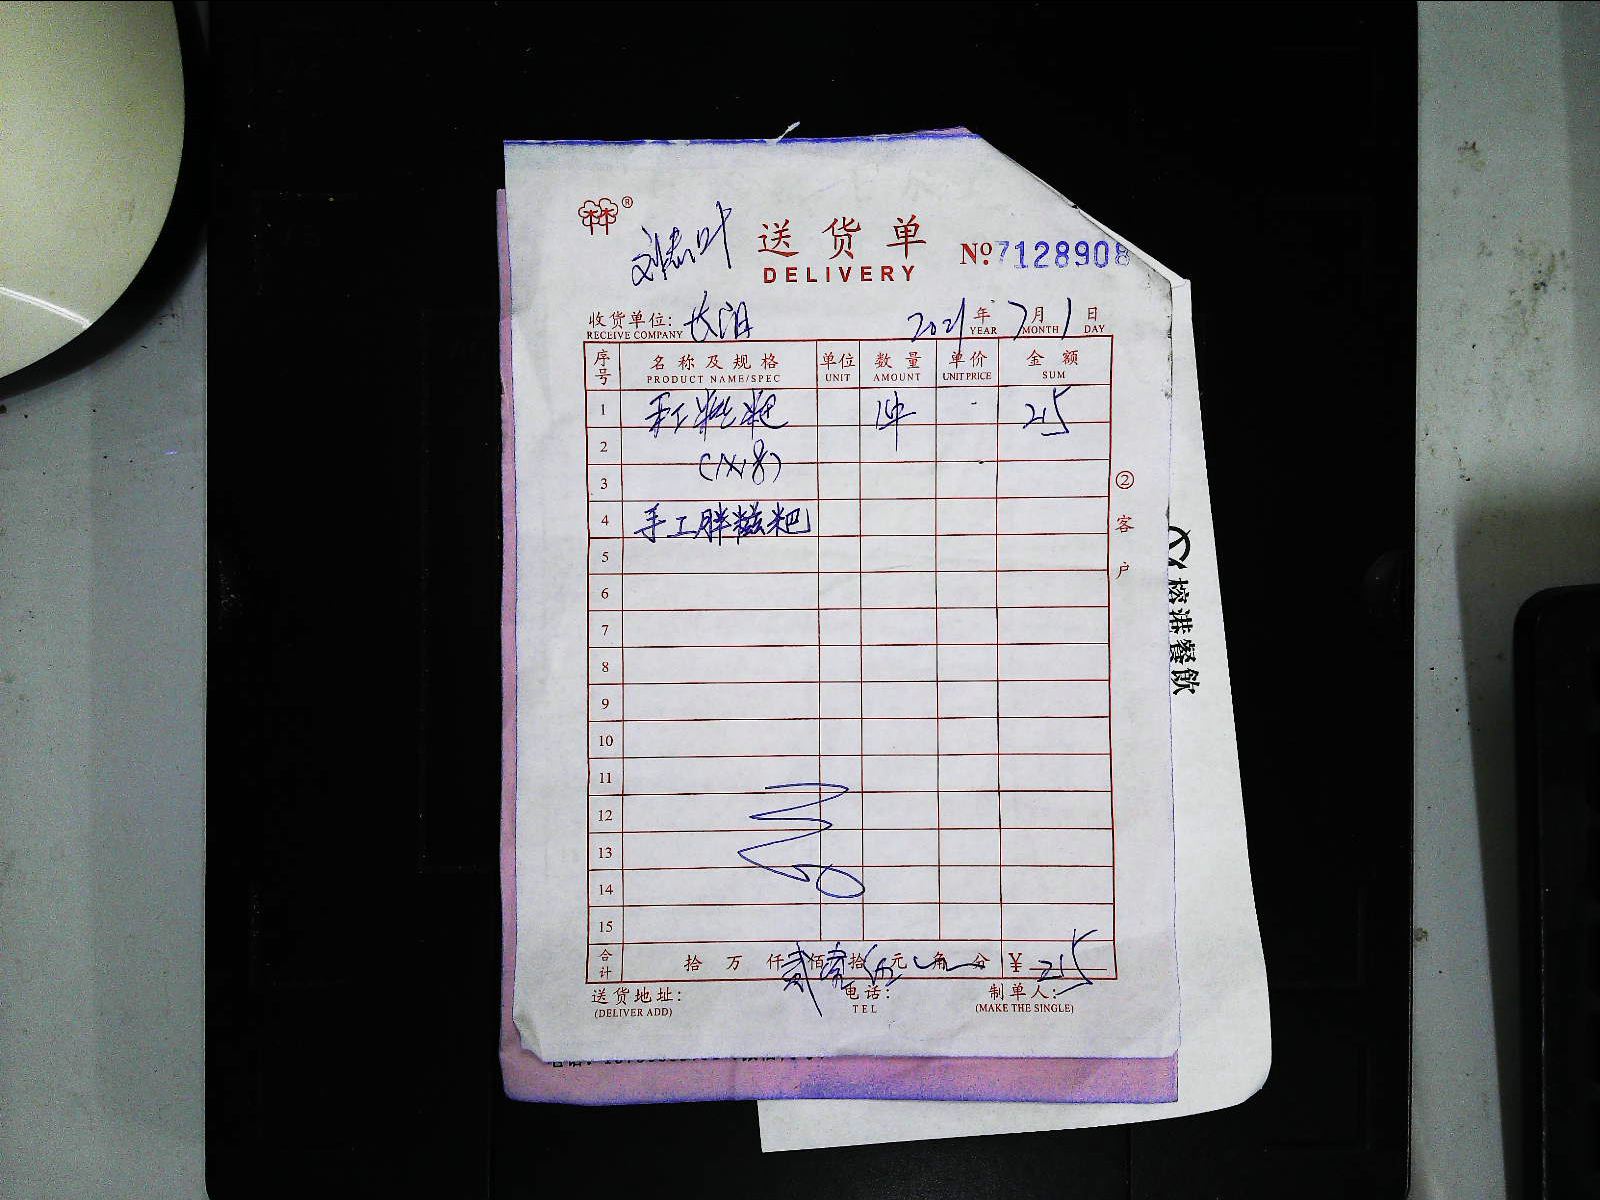 林®
送货单 № 7128908
DELIVERY
收货单位: 长阳 2021年7月1日
RECEIVE COMPANY YEAR MONTH DAY
序号 名称及规格 单位 数量 单价 金额
PRODUCT NAME/SPEC UNIT AMOUNT UNIT PRICE SUM
1 手工糍粑 1件 215
2
3
4 手工胖糍粑
5
6
7
8
9
10
11
12
13
14
15
合计 拾 万 仟 贰佰 壹拾 伍元 角 分 ¥ 215
送货地址: 电话: 制单人:
(DELIVER ADD) TEL (MAKE THE SINGLE)
②客户
松港餐飲